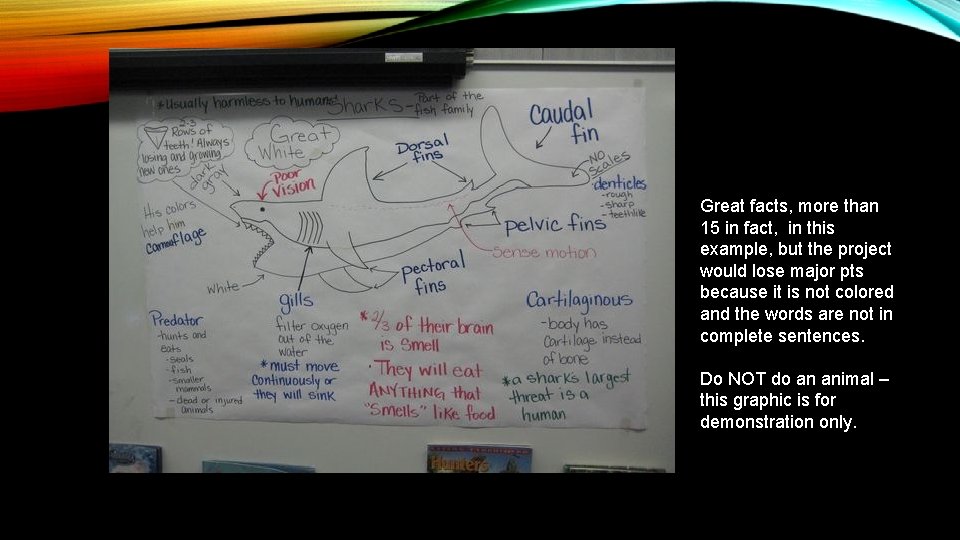 *Usually harmless to humans
Sharks - Part of the
fish family
2-3
Rows of
teeth! Always
losing and growing
new ones
Great
White
dark
gray
Poor
Vision
Dorsal
fins
Caudal
fin
No
scales
denticles
-rough
-sharp
-teethlike
His colors
help him
camouflage
pelvic fins
sense motion
white
gills
pectoral
fins
Predator
-hunts and
eats
-seals
-fish
-smaller
mammals
-dead or injured
animals
filter oxygen
out of the
water
*must move
continuously or
they will sink
*2/3 of their brain
is smell
·They will eat
ANYTHING that
"smells" like food
Cartilaginous
-body has
cartilage instead
of bone
*a sharks largest
threat is a
human
Hunters
Great facts, more than
15 in fact, in this
example, but the project
would lose major pts
because it is not colored
and the words are not in
complete sentences.
Do NOT do an animal –
this graphic is for
demonstration only.